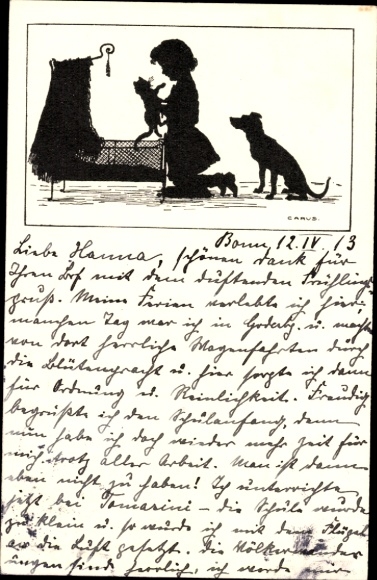 CARUS.
Bonn, 12. IV. 13
Liebe Hanna, schönen Dank für
Ihren Brf mit dem duftenden Frühlings-
gruß. Meine Ferien verlebte ich hier,
manchen Tag war ich in Godesbg. u. machte
von dort herrliche Wagenfahrten durch
die Blütenpracht u. hier sorgte ich dann
für Ordnung u. Reinlichkeit. Freudig
begrüßte ich den Schulanfang, denn
nun habe ich doch wieder mehr Zeit für
mich trotz aller Arbeit. Man ist dann
eben nicht zu haben! Ich unterrichte
jetzt bei – die Schule wurde
zu klein u. so wurde ich mit dem Flügel
an die Luft gesetzt. Die
ungen sind herrlich, ich werde mir